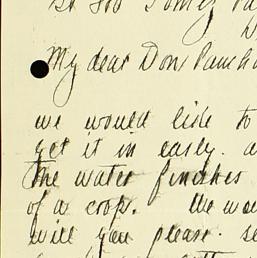 My dear Don Pancho
we would like to
get it in early. a
The water finishes
of a crop. We wou
will you please se